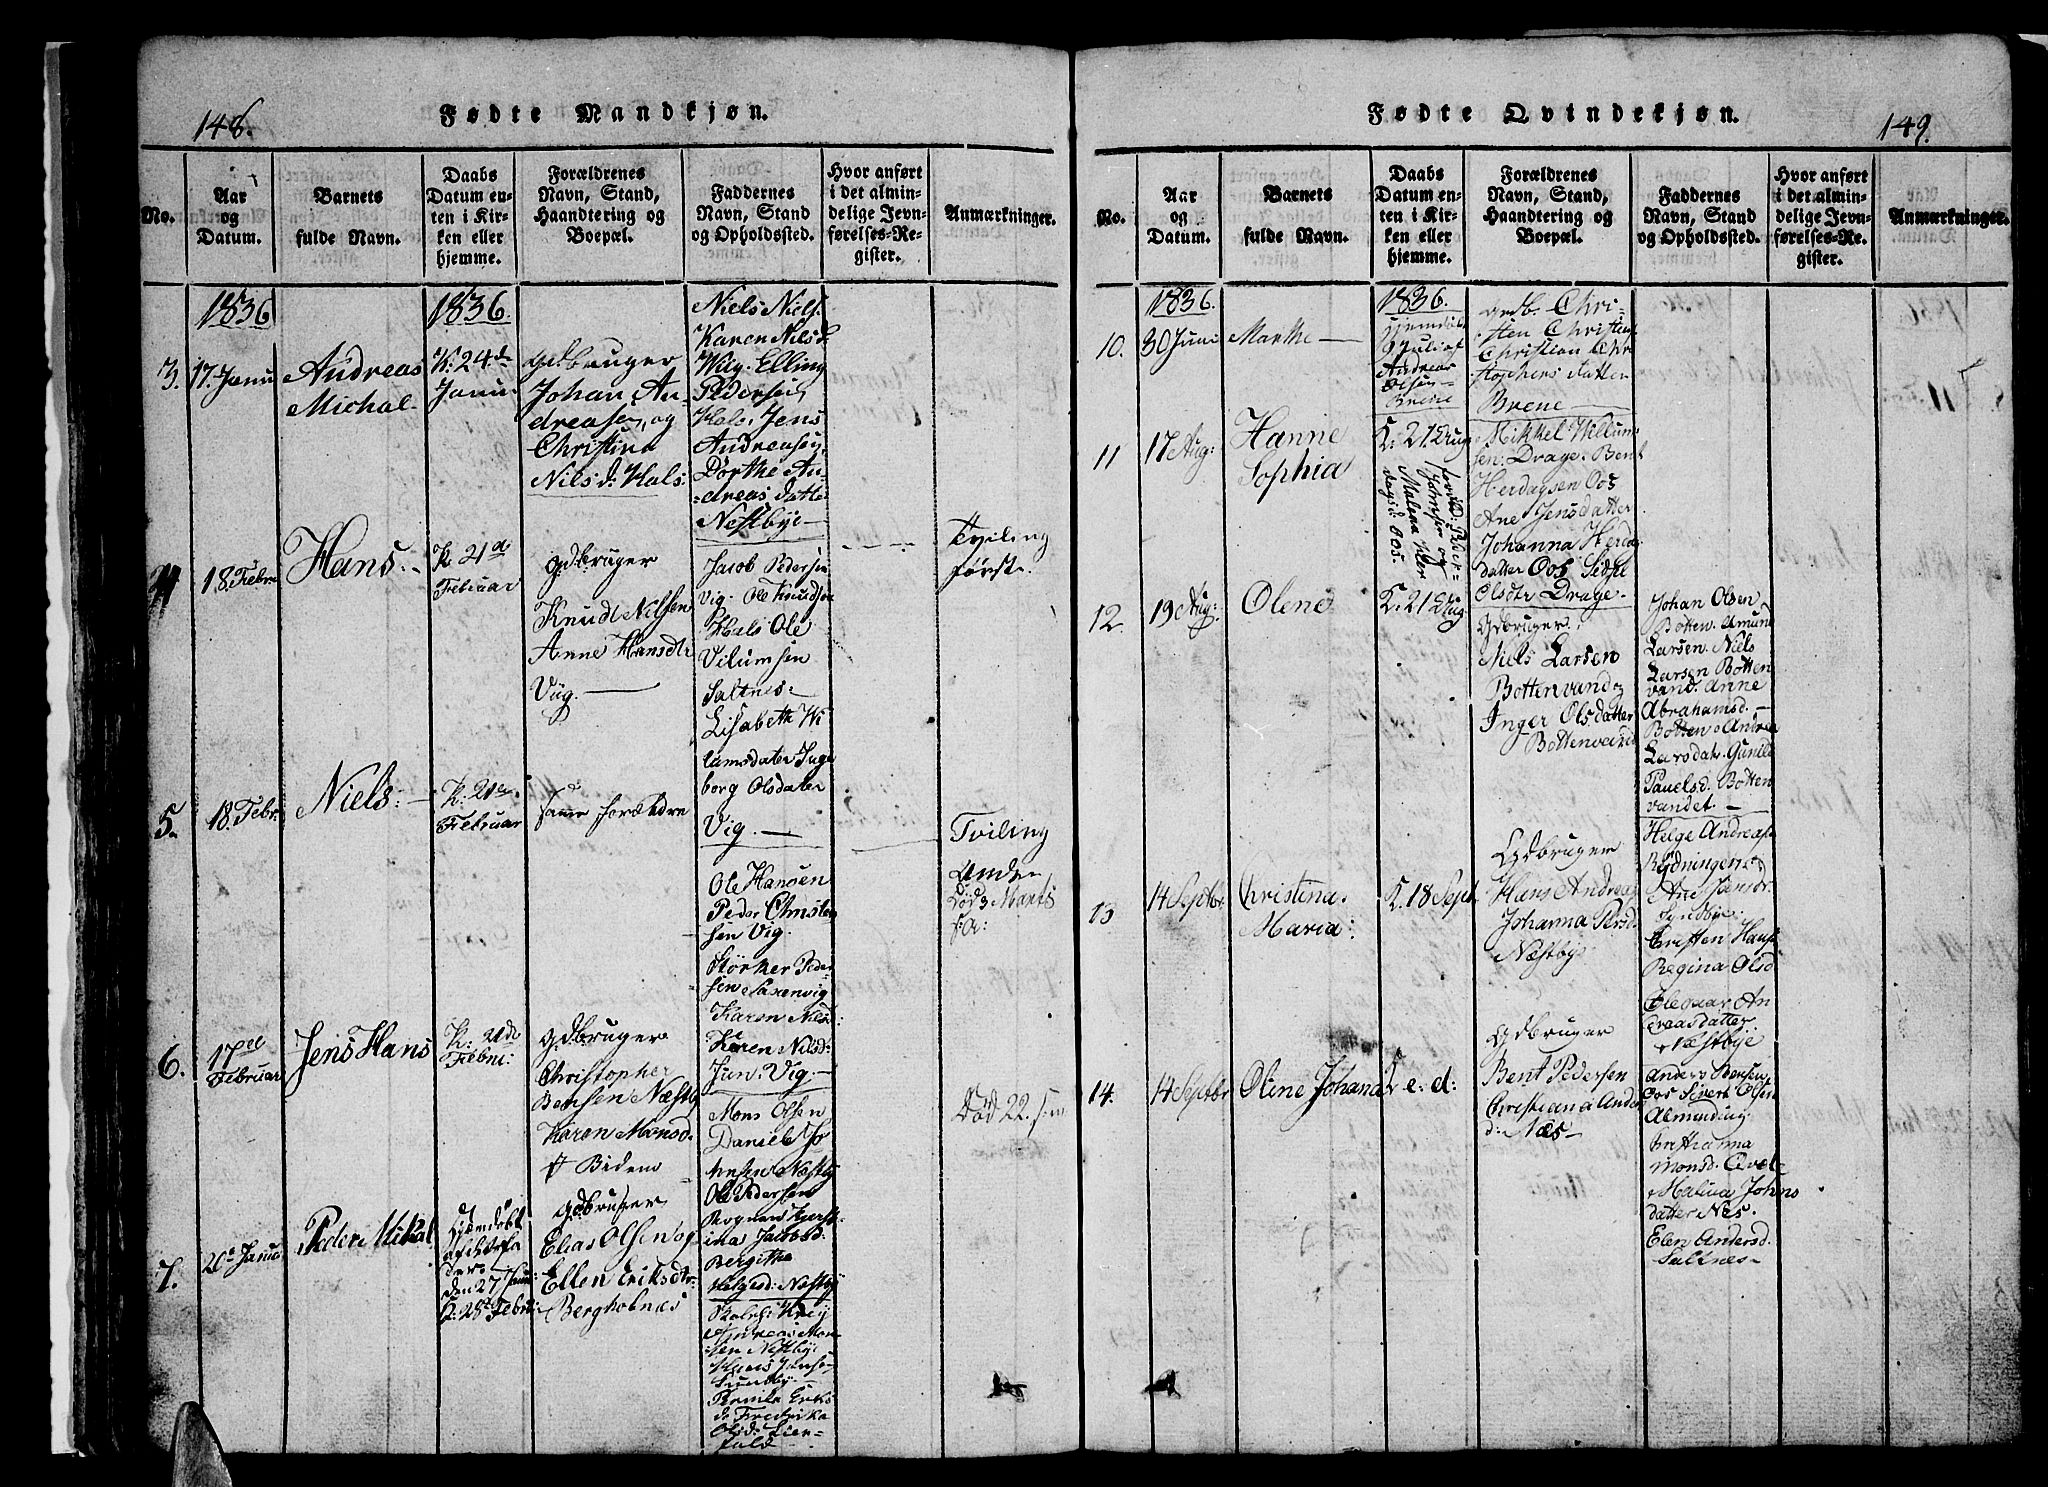 148.
Fødte Mandkjøn.
No.
Aar
og
Datum.
Barnets
fulde Navn.
Daabs
Datum en-
ten i Kir-
ken eller
hjemme.
Forældrenes
Navn, Stand,
Haandtering og
Boepæl.
Faddernes
Navn, Stand
og Opholdssted.
Hvor anført
i det almin-
delige Jevn-
førelses-Re-
gister.
Anmærkninger.
1836
1836.
3.
17. Janu
Andreas
Michal
K: 24de
Janu
Gdbruger
Johan An-
dreasen, og
Christina
Nils d: Hals
Niels Niels.
Karen Nilsd
Vig. Elling
Pedersen
Hals. Jens
Andreasen
Dorthe An-
dreas datte
Nestbye
4
18. Febru
Hans.
K 21d
Februar
Gdbruger
Knudt Nilsen
Anne Hansdtr
Vug.
Jacob Pedersen
Vig. Ole Knudsen
Hals Ole
Vilumsen
Saltnes
Lisabeth Wi
lamsdater Inge
borg Olsdater
Vig.
Tviling
første.
5.
18. Febr.
Niels:
K: 21de
Februar
same Forældre
Ole Hansen
Peder Christen
sen Vig.
Størker Peder
sen Saxenvig
Karen Nilsd:
Karen Nilsd:
Jun: Vig.
Tviling
Anden
Død 3 Marts
s: A:
6.
17de
Februar
Jens Hans
K: 21de
Febru:
Gdbruger
Christopher
Bensen Næstby
Karen Monsd.
Mons Olsen
Daniel Jo
hnsen Næstby
Ole Pedersen
Rognan Kjerst
ina Jacobsd:
Bergithe
Helgesd: Næstby
Død 22.
7.
20de Janua
Peder Mikal
Hjemdøbt
af
den 27 Janu:
K: 28de Febru
Gdbruger
Elias Olsen og
Ellen Eriksdtr
Bergholmnes
Andreas Mon
sen Nestbye
Hans Jense
Sundby
Pernila Eriks
d: Fredrika
Olsd: Lien-
fald
149.
Fødte Qvindekjøn.
No.
Aar
og
Datum.
Barnets
fulde Navn.
Daabs
Datum en-
ten i Kir-
ken eller
hjemme.
Forældrenes
Navn, Stand,
Haandtering og
Boepæl.
Faddernes
Navn, Stand
og Opholdssted.
Hvor anført
i det almin-
delige Jevn-
førelses-Re-
gister.
Anmærkninger.
1836.
1836.
10.
30 Juni
Marthe
Hjemdøbt
Juli af
Andreas
Olsen
Brene
Grdb. Chri-
sten Christian
Christian Chr
stophers datter
Brene
11
17 Aug:
Hanne
Sophia
K: 21 Aug
Forld: Peder
Johnsen og
Malena Her
dags d: Oos.
Mikkel Willum
sen: Drage. Bent
Herdagsen Oos
Ane Jensdatter
Johanna Herda
datter Oos Sidsel
Olsdtr Drage.
12.
19 Aug:
Olene
K: 21 Aug
Gdbruger
Niels Larsen
Bottenvand og
Inger Olsdatter
Bottenvand
Johan Olsen
Botten. Amund
Larsen. Niels
Larsen Botten
vand. Anne
Abrahamsd.
Botten. Andrea
Larsdatr. Gunild
Pauelsd. Botten
vandet.
13
14 Septbr.
Christina
Maria:
K. 18 Sept.
Gdbruger
Hans Andreas
Johanna Persd.
Næstby
Helge Andreas
Rødningen
Ane Jensdr
Sundbye
Cristen Hans
Regina Olsd
Oleanar An
dreasdatter
Næstbye
14.
14 Septbr
Oline Johana
K e: d:
Gdbruger
Bent Pedersen
Christiana Ander
d: Næs
Anders Bensen
Oos Sivert Olsen
Almending
Cristianna
monsd. Qvæl-
Malina Johns
datter Nes.
Elen Andersd.
Saltnes